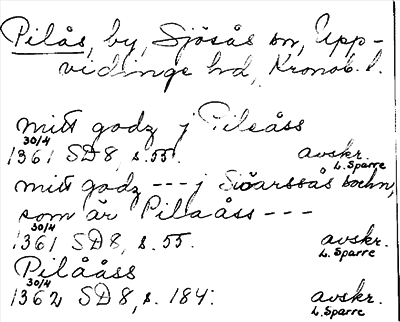 Pilås, by, Sjösås sn, Upp-
vidinge hd, Kronob. l.
mitt godz j Pileåss
30/4
1361 SD 8, s. 55. avskr.
L. Sparre
mitt godz --- j Siöarssås sochn,
som är Pilaåss ---
30/4
1361 SD 8, s. 55. avskr.
L. Sparre
Pilååss
30/4
1362 SD 8, s. 184. avskr.
L. Sparre